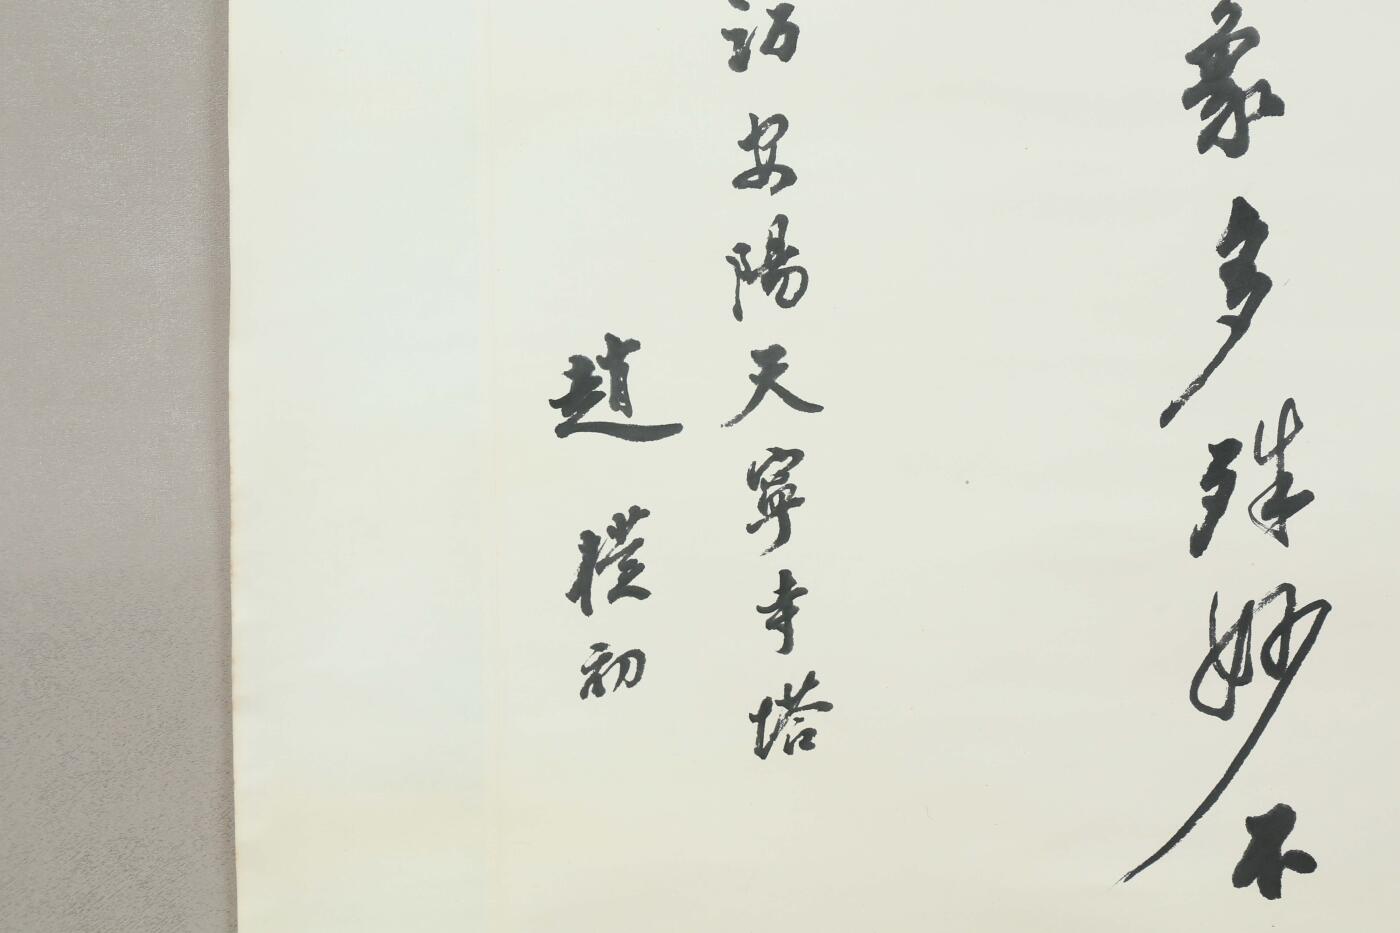 象多殊妙不
訪安陽天寧寺塔
趙樸初